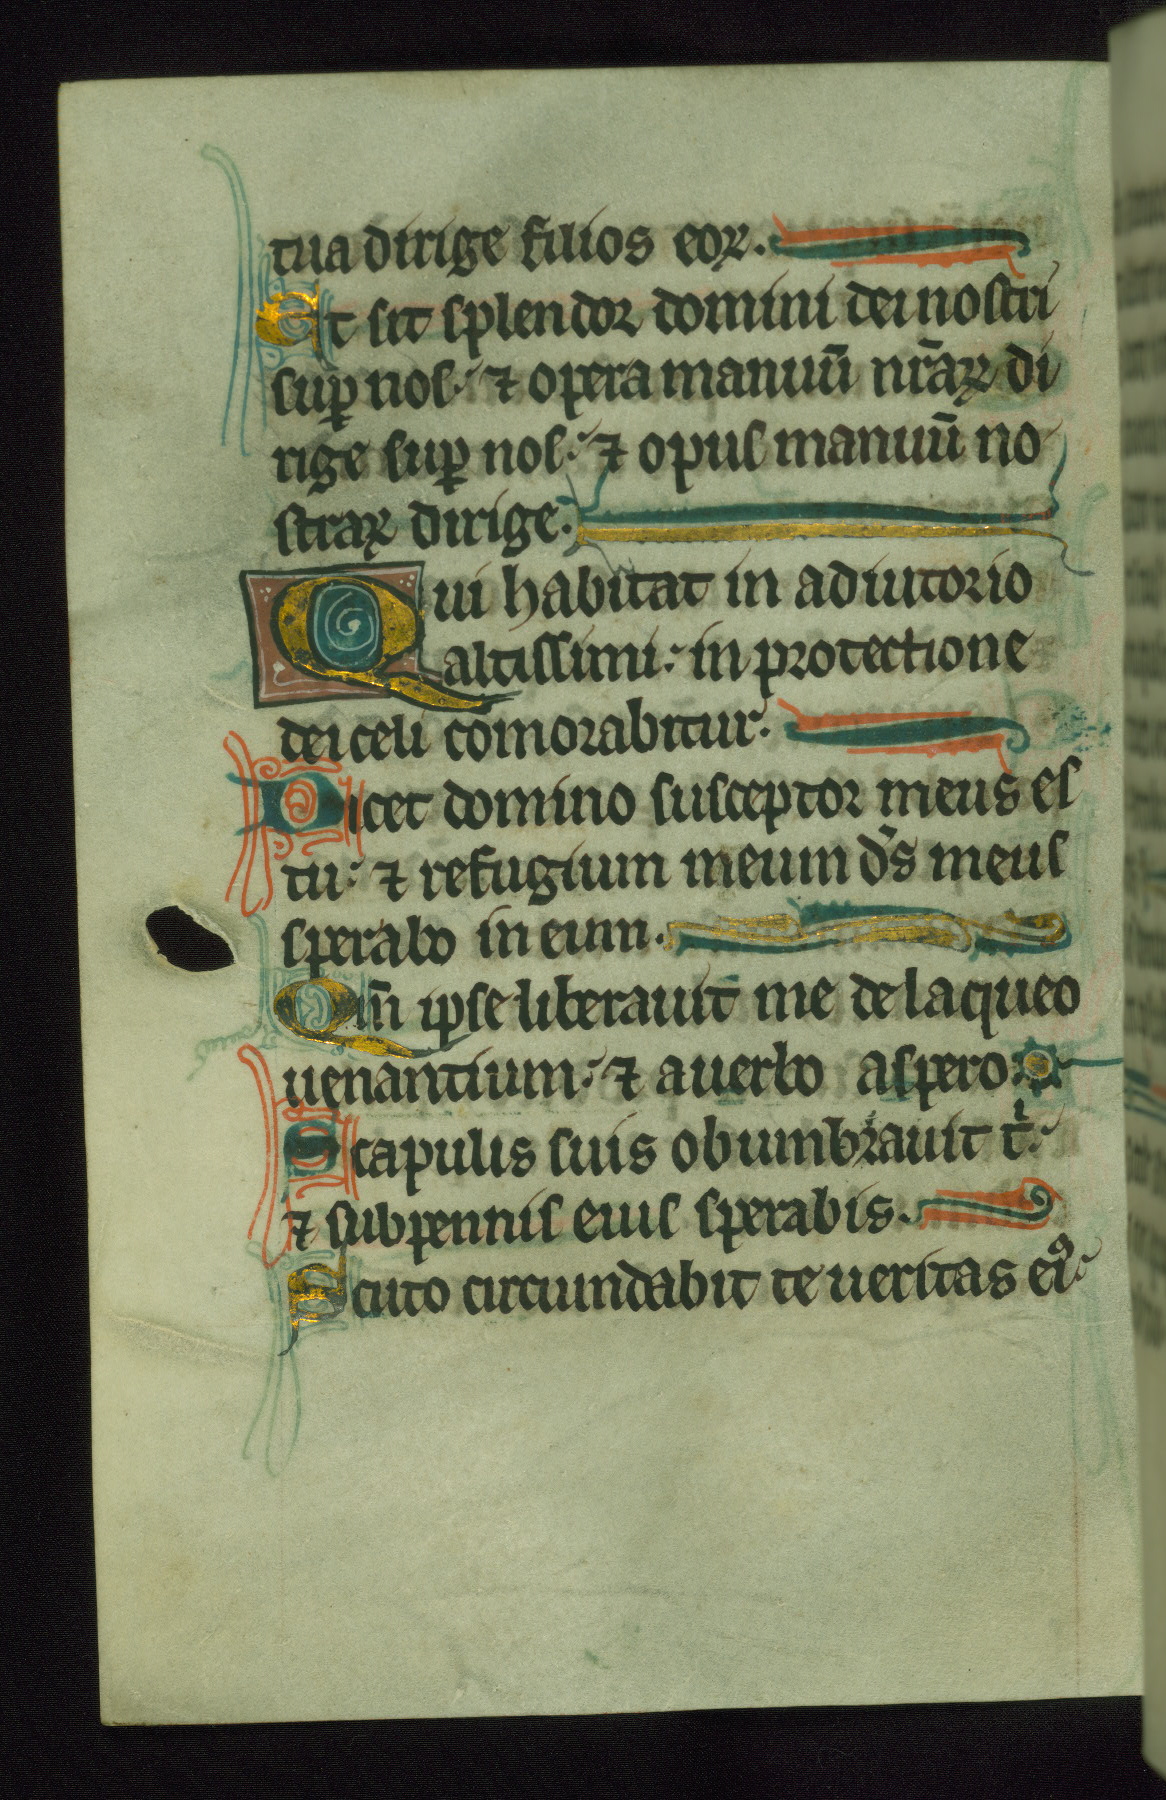 tua dirige filios eoꝝ.
Et sit splendor domini dei nostri
suꝑ nos. ⁊ opera manuū nr̄aꝝ di
rige suꝑ nos. ⁊ opus manuū no
straꝝ dirige.
Qui habitat in adiutorio
altissimi. in protectione
dei celi comorabitur.
Dicet domino susceptor meus es
tu. ⁊ refugium meum ds̄ meus
sperabo in eum.
Qm̄ ipse liberauit me de laqueo
uenantium. ⁊ a uerbo aspero.
Scapulis suis obumbrauit tⁱ.
⁊ sub pennis eius sperabis.
Scuto circumdabit te ueritas eiꝰ